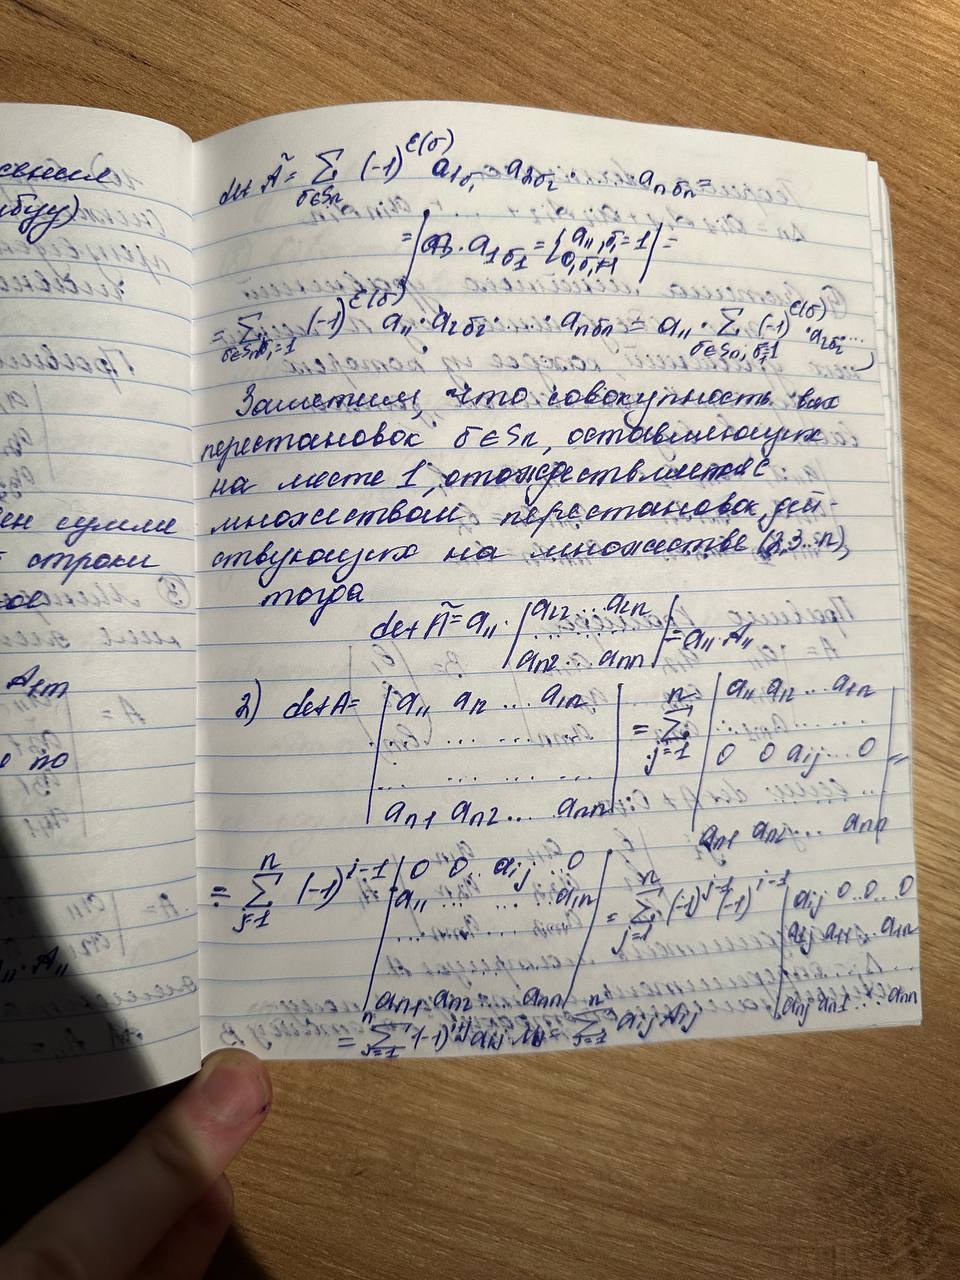 сти
ибуу)
ен сумме
строки
Aкт
по
A₁₁
det Ã = ∑_{σ∈Sn} (-1)^{ε(σ)} a_{1σ₁} · a_{2σ₂} · ... · a_{nσn} =
= | a_{1σ1} = { a₁₁, σ₁ = 1; 0, σ₁ ≠ 1 | =
= ∑_{σ∈Sn, σ₁=1} (-1)^{ε(σ)} a₁₁ · a_{2σ₂} · ... · a_{nσn} = a₁₁ · ∑_{σ∈Sn; σ₁=1} (-1)^{ε(σ)} · a_{2σ₂} ...
Заметим, что совокупность всех
перестановок σ ∈ Sn, оставляющих
на месте 1, отождествляется с
множеством перестановок, дей-
ствующих на множестве (2,3...n),
тогда
det Ã = a₁₁ · | a₂₂ ... a₂n ; ... ... ; an₂ ... ann | = a₁₁ · A₁₁
2) det A = | a₁₁ a₁₂ ... a₁n ; ... ... ; ... ... ; an₁ an₂ ... ann | = ∑_{j=1}^{n} | a₁₁ a₁₂ ... a₁n ; ... ... ; 0 0 aij ... 0 ; an₁ an₂ ... ann | =
= ∑_{j=1}^{n} (-1)^{i-1} | 0 0 .. aij .. 0 ; a₁₁ ... ... a₁n ; an₁ an₂ ... ann | = ∑_{j=1}^{n} (-1)^{j-1} (-1)^{i-1} | aij 0..0..0 ; a₁j a₁₁ .. a₁n ; anj an₁ ... ann |
= ∑_{j=1}^{n} (-1)^{i+j} aij · Mij = ∑_{j=1}^{n} aij Aij